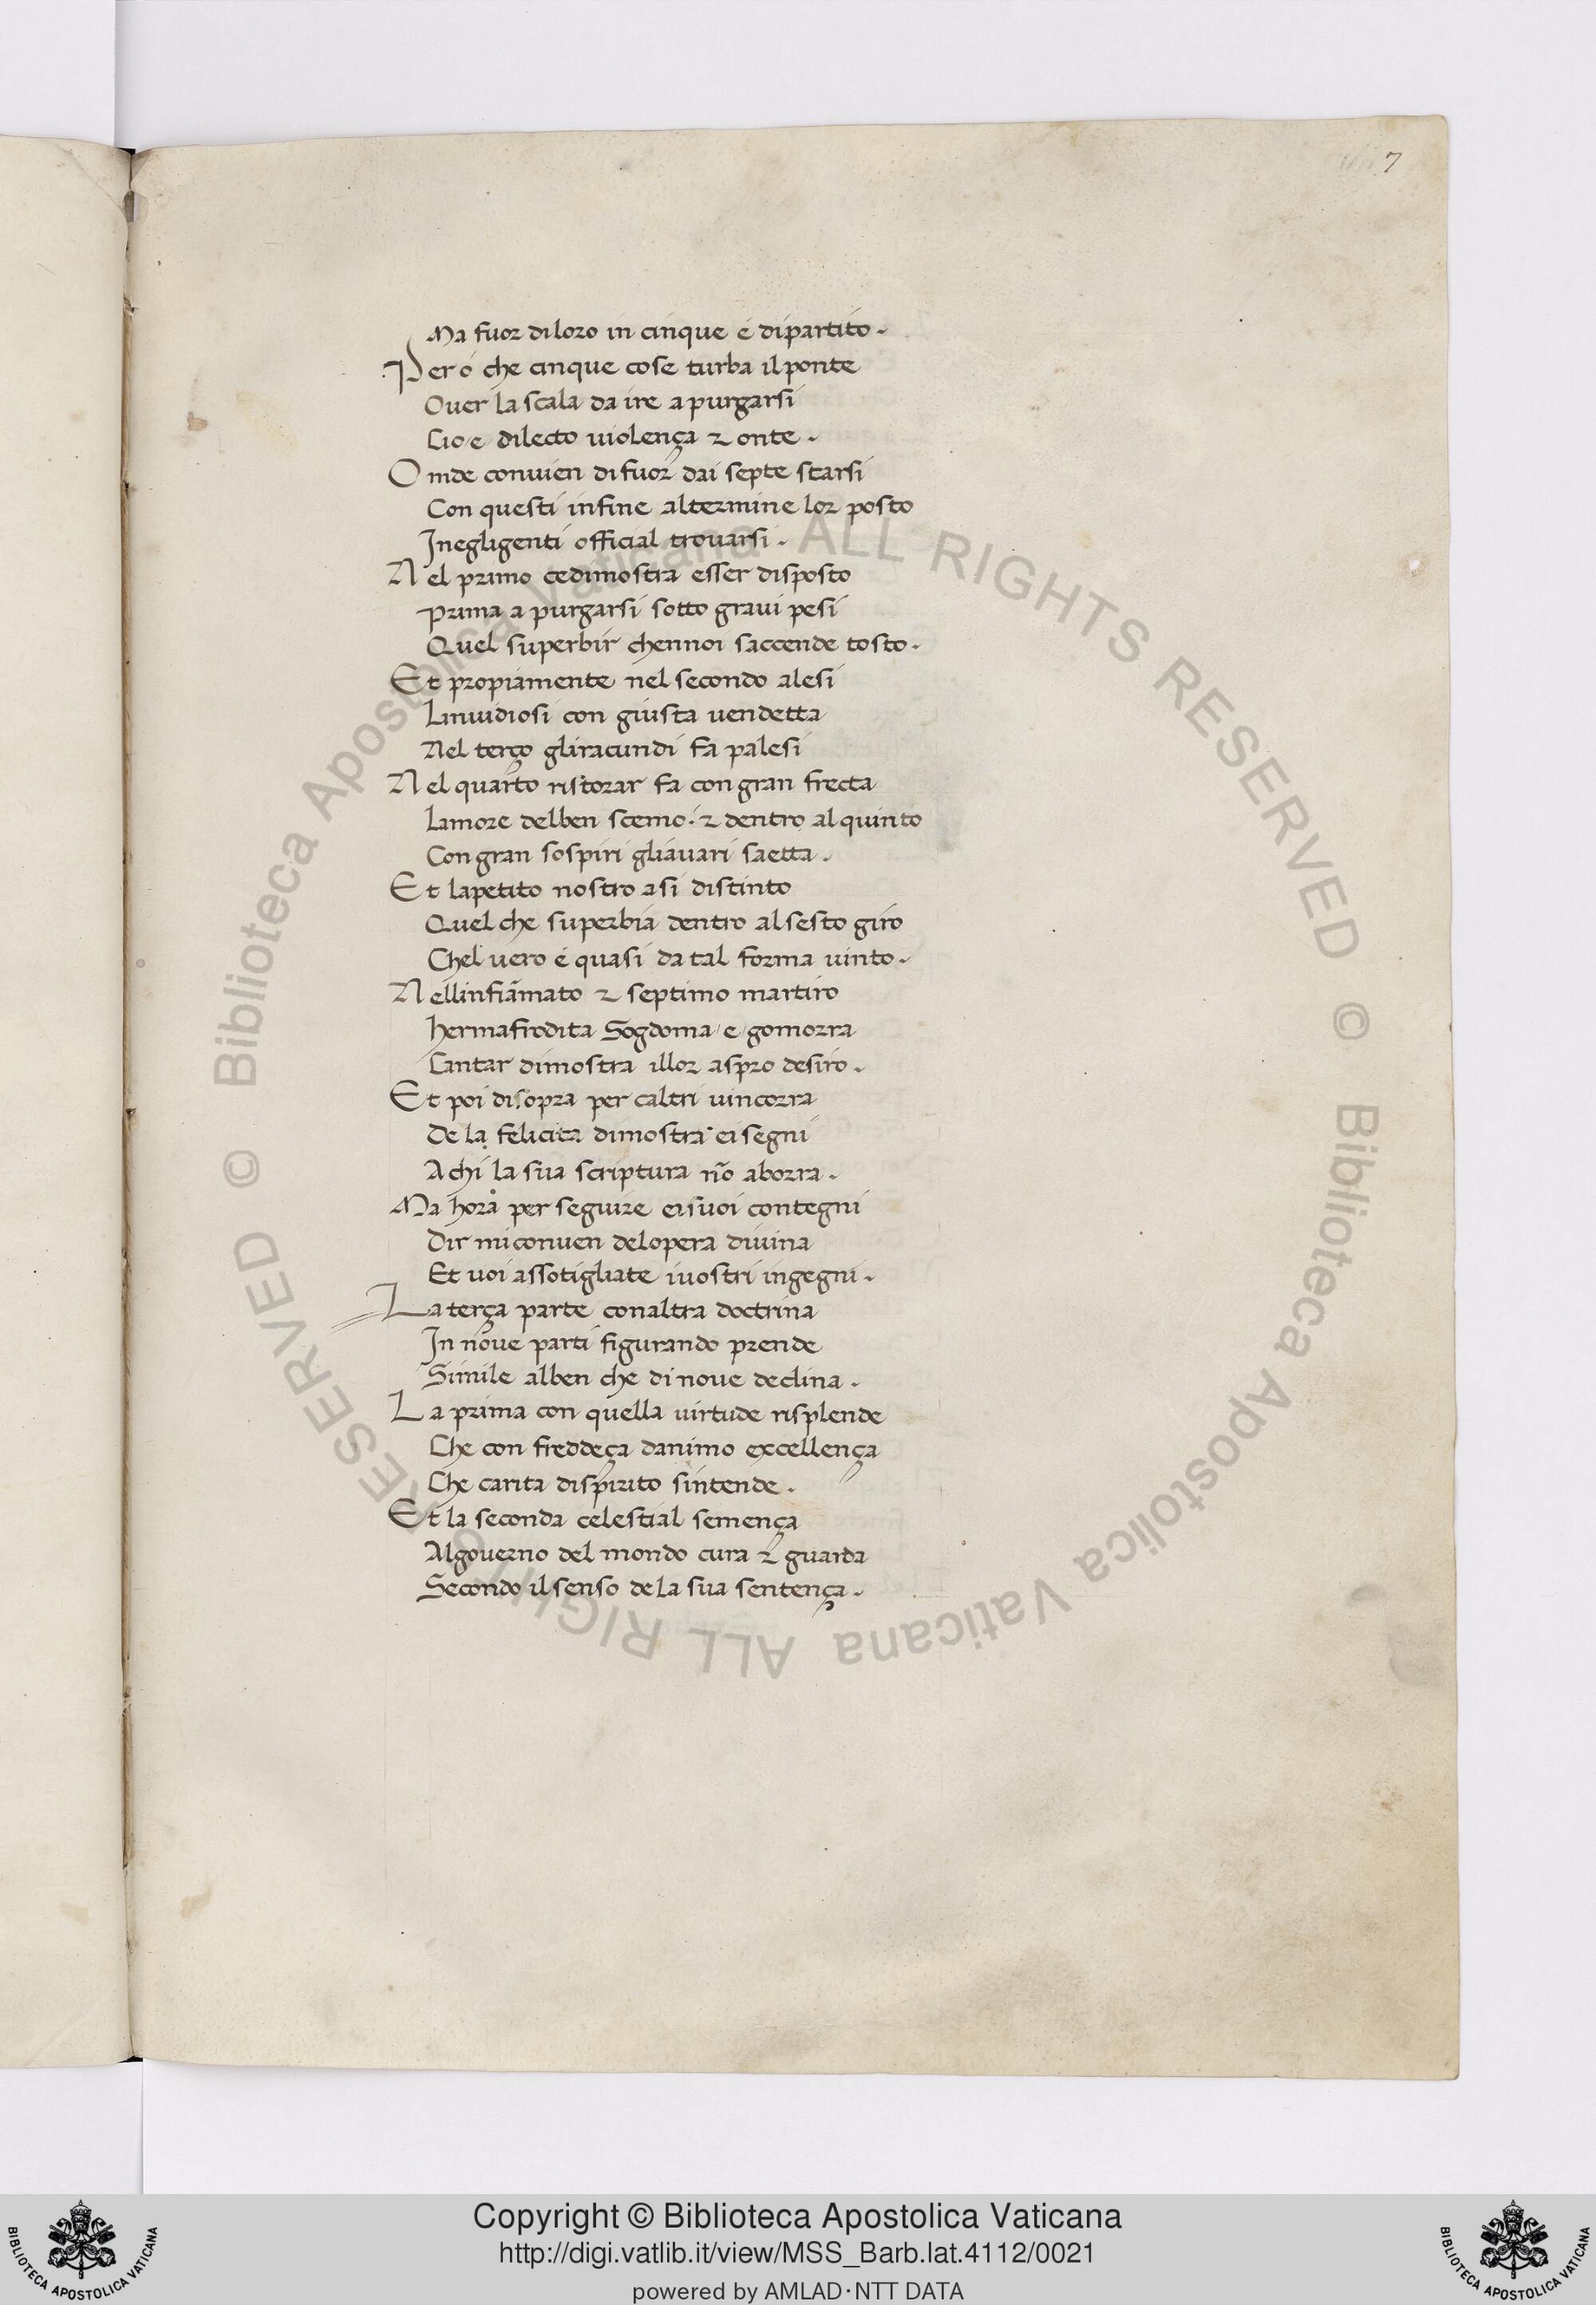 7
Ma fuor di loro in cinque é dipartito.
Peró che cinque cose turba il ponte
Ouer la scala da ire a purgarsi
Cio e dilecto uiolença ⁊ onte.
Onde conuien di fuor dai septe starsi
Con questi infine al termine lor posto
Inegligenti official trouarsi.
Nel primo cedimostra esser disposto
Prima a purgarsi sotto graui pesi
Quel superbir chennoi saccende tosto.
Et propiamente nel secondo alesi
Linuidiosi con giusta uendetta
Nel terço gliracundi fa palesi
Nel quarto ristorar fa con gran frecta
Lamore delben scemo. ⁊ dentro al quinto
Con gran sospiri gliauari saetta.
Et lapetito nostro asi distinto
Quel che superbia dentro al sesto giro
Chel uero é quasi da tal forma uinto.
Nellinfiāmato ⁊ septimo martiro
hermafrodita Sogdoma e gomorra
Cantar dimostra illor aspro desiro.
Et poi disopra per caltri uincorra
De la felicita dimostra ei segni
A chi la sua scriptura nō aborra.
Ma hora per seguire ei suoi contegni
Dir mi conuen delopera diuina
Et uoi assotigliate iuostri ingegni.
La terça parte conaltra doctrina
In noue parti figurando prende
Simile alben che di noue declina.
La prima con quella uirtude risplende
Che con freddeça danimo excellença
Che carita dispirito sintende.
Et la seconda celestial semença
Algouerno del mondo cura ⁊ guarda
Secondo il senso de la sua sentença.
© Biblioteca Apostolica Vaticana ALL RIGHTS RESERVED
© Biblioteca Apostolica Vaticana ALL RIGHTS RESERVED
Copyright © Biblioteca Apostolica Vaticana
http://digi.vatlib.it/view/MSS_Barb.lat.4112/0021
powered by AMLAD·NTT DATA
BIBLIOTECA APOSTOLICA VATICANA
BIBLIOTECA APOSTOLICA VATICANA